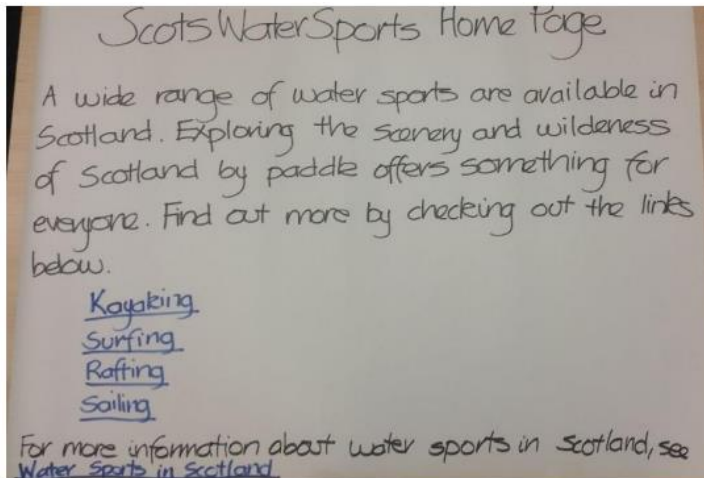 Scots Water Sports Home Page
A wide range of water sports are available in
Scotland. Exploring the scenery and wildeness
of Scotland by paddle offers something for
everyone. Find out more by checking out the links
below.
Kayaking
Surfing
Rafting
Sailing
For more information about water sports in Scotland, see
Water Sports in Scotland